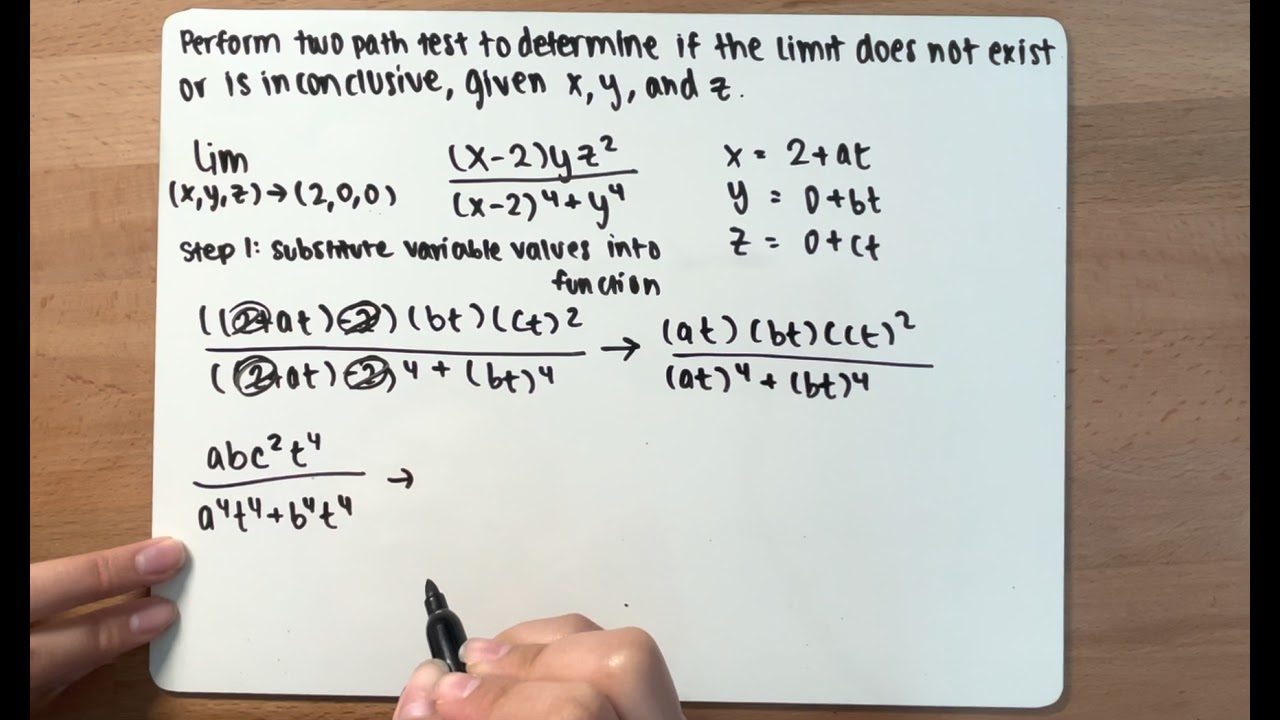 Perform two path test to determine if the limit does not exist
or is inconclusive, given x, y, and z.
lim (x-2)yz² x = 2+at
(x,y,z)→(2,0,0) (x-2)⁴+y⁴ y = 0+bt
z = 0+ct
Step 1: substitute variable values into
function
((2+at)-2)(bt)(ct)² → (at)(bt)(ct)²
((2+at)-2)⁴+(bt)⁴ (at)⁴+(bt)⁴
abc²t⁴ →
a⁴t⁴+b⁴t⁴